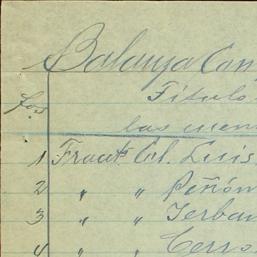 Balanza Con
Fos. Título
las cuen
1 Fract. Col. Luis
2 " " Peñón
3 " "
4 " " Cerro